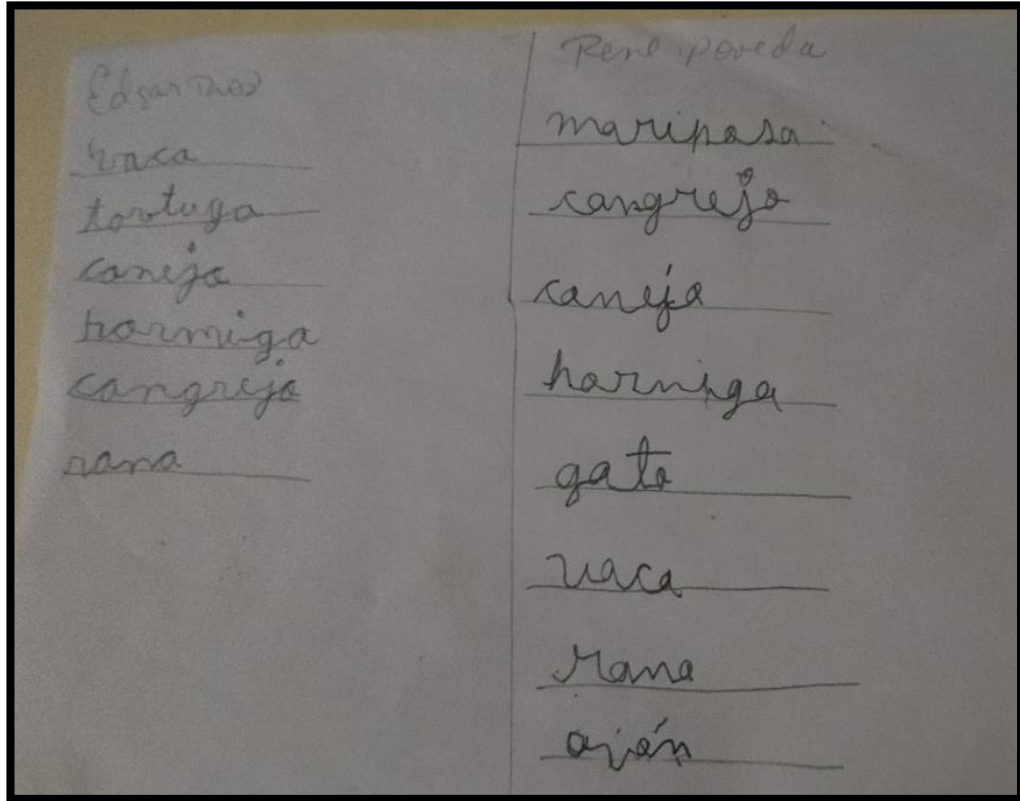 Edgar Diaz
vaca
tortuga
coneja
hormiga
cangrejo
rana
Rene poveda
mariposa
cangrejo
conejo
horniga
gato
vaca
rana
avión